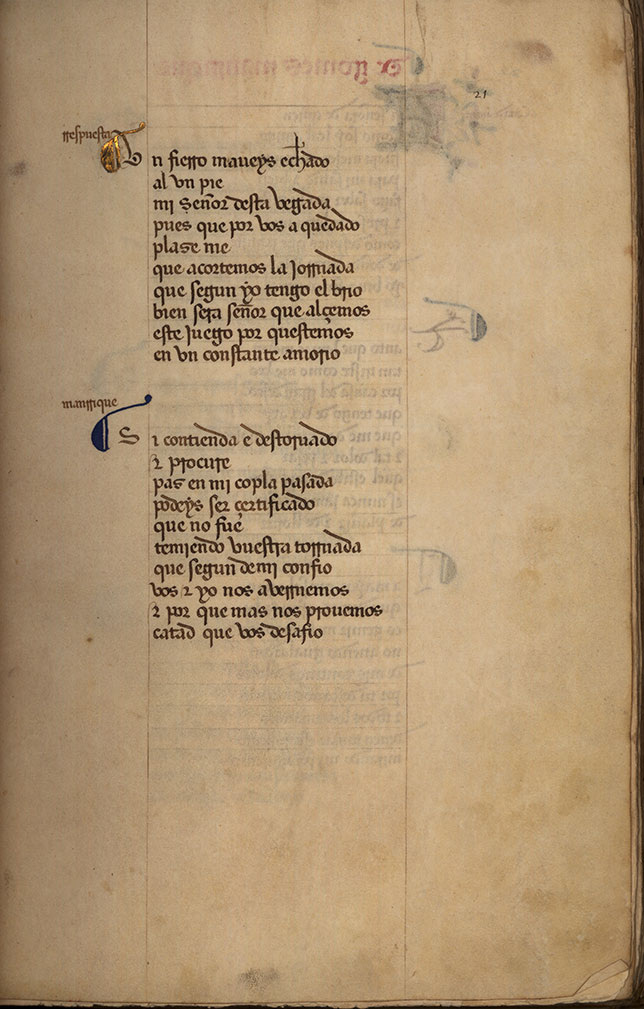 21
rrespuesta
Un fierro maueys echado
al vn pie
mi Señor desta vegada
pues que por vos a quedado
plase me
que acortemos la Jornada
que segun yo tengo el brio
bien sera señor que alçemos
este Juego por questemos
en vn constante amorio
manrrique
Si contienda e destoruado
z procure
pas en mi copla pasada
podeys ser çertificado
que no fue
temiendo vuestra tornada
que segun de mi confio
vos z yo nos auernemos
z por que mas nos prouemos
catad que vos desafio